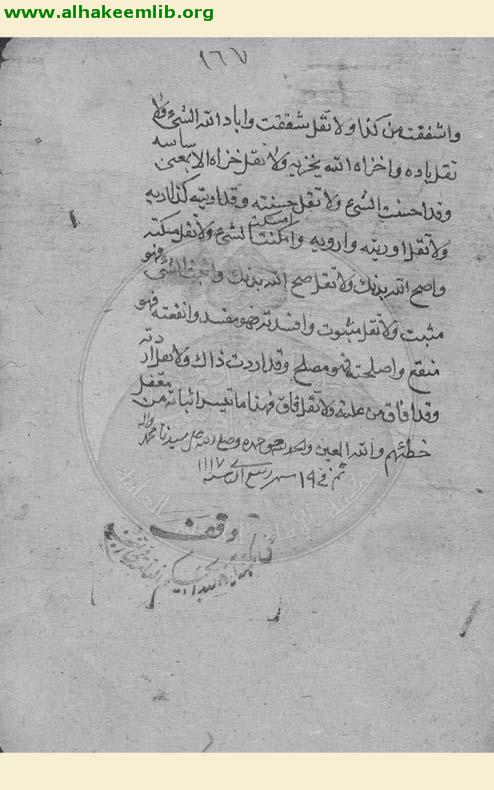 www.alhakeemlib.org
١٦٧
واشفقت من كذا ولا تقل شفقت واباد الله الشيء ولا
تقل باده واخزاه الله يخزيه ولا تقل خزاه الا بمعنى ساسه
وقد احسنت الشيء ولا تقل حسنته وقد
ولا تقل اوريته واورويه وامكنت الشيء ولا تقل مكنته
واصح الله بدنك ولا تقل صح الله بدنك واثبت الشيء فهو
مثبت ولا تقل مثبوت وافسدته فهو مفسد وانفعته فهو
منفع واصلحته فهو مصلح وقد اردت ذاك ولا تقل ردته
وقد افاق من علته ولا تقل فاق فهذا ما تيسر اثباته من
خطئهم والله المعين والحمد لله وحده وصلى الله على سيدنا محمد واله
تم في ١٩ شهر ربيع سنه ١١١٧
وقف